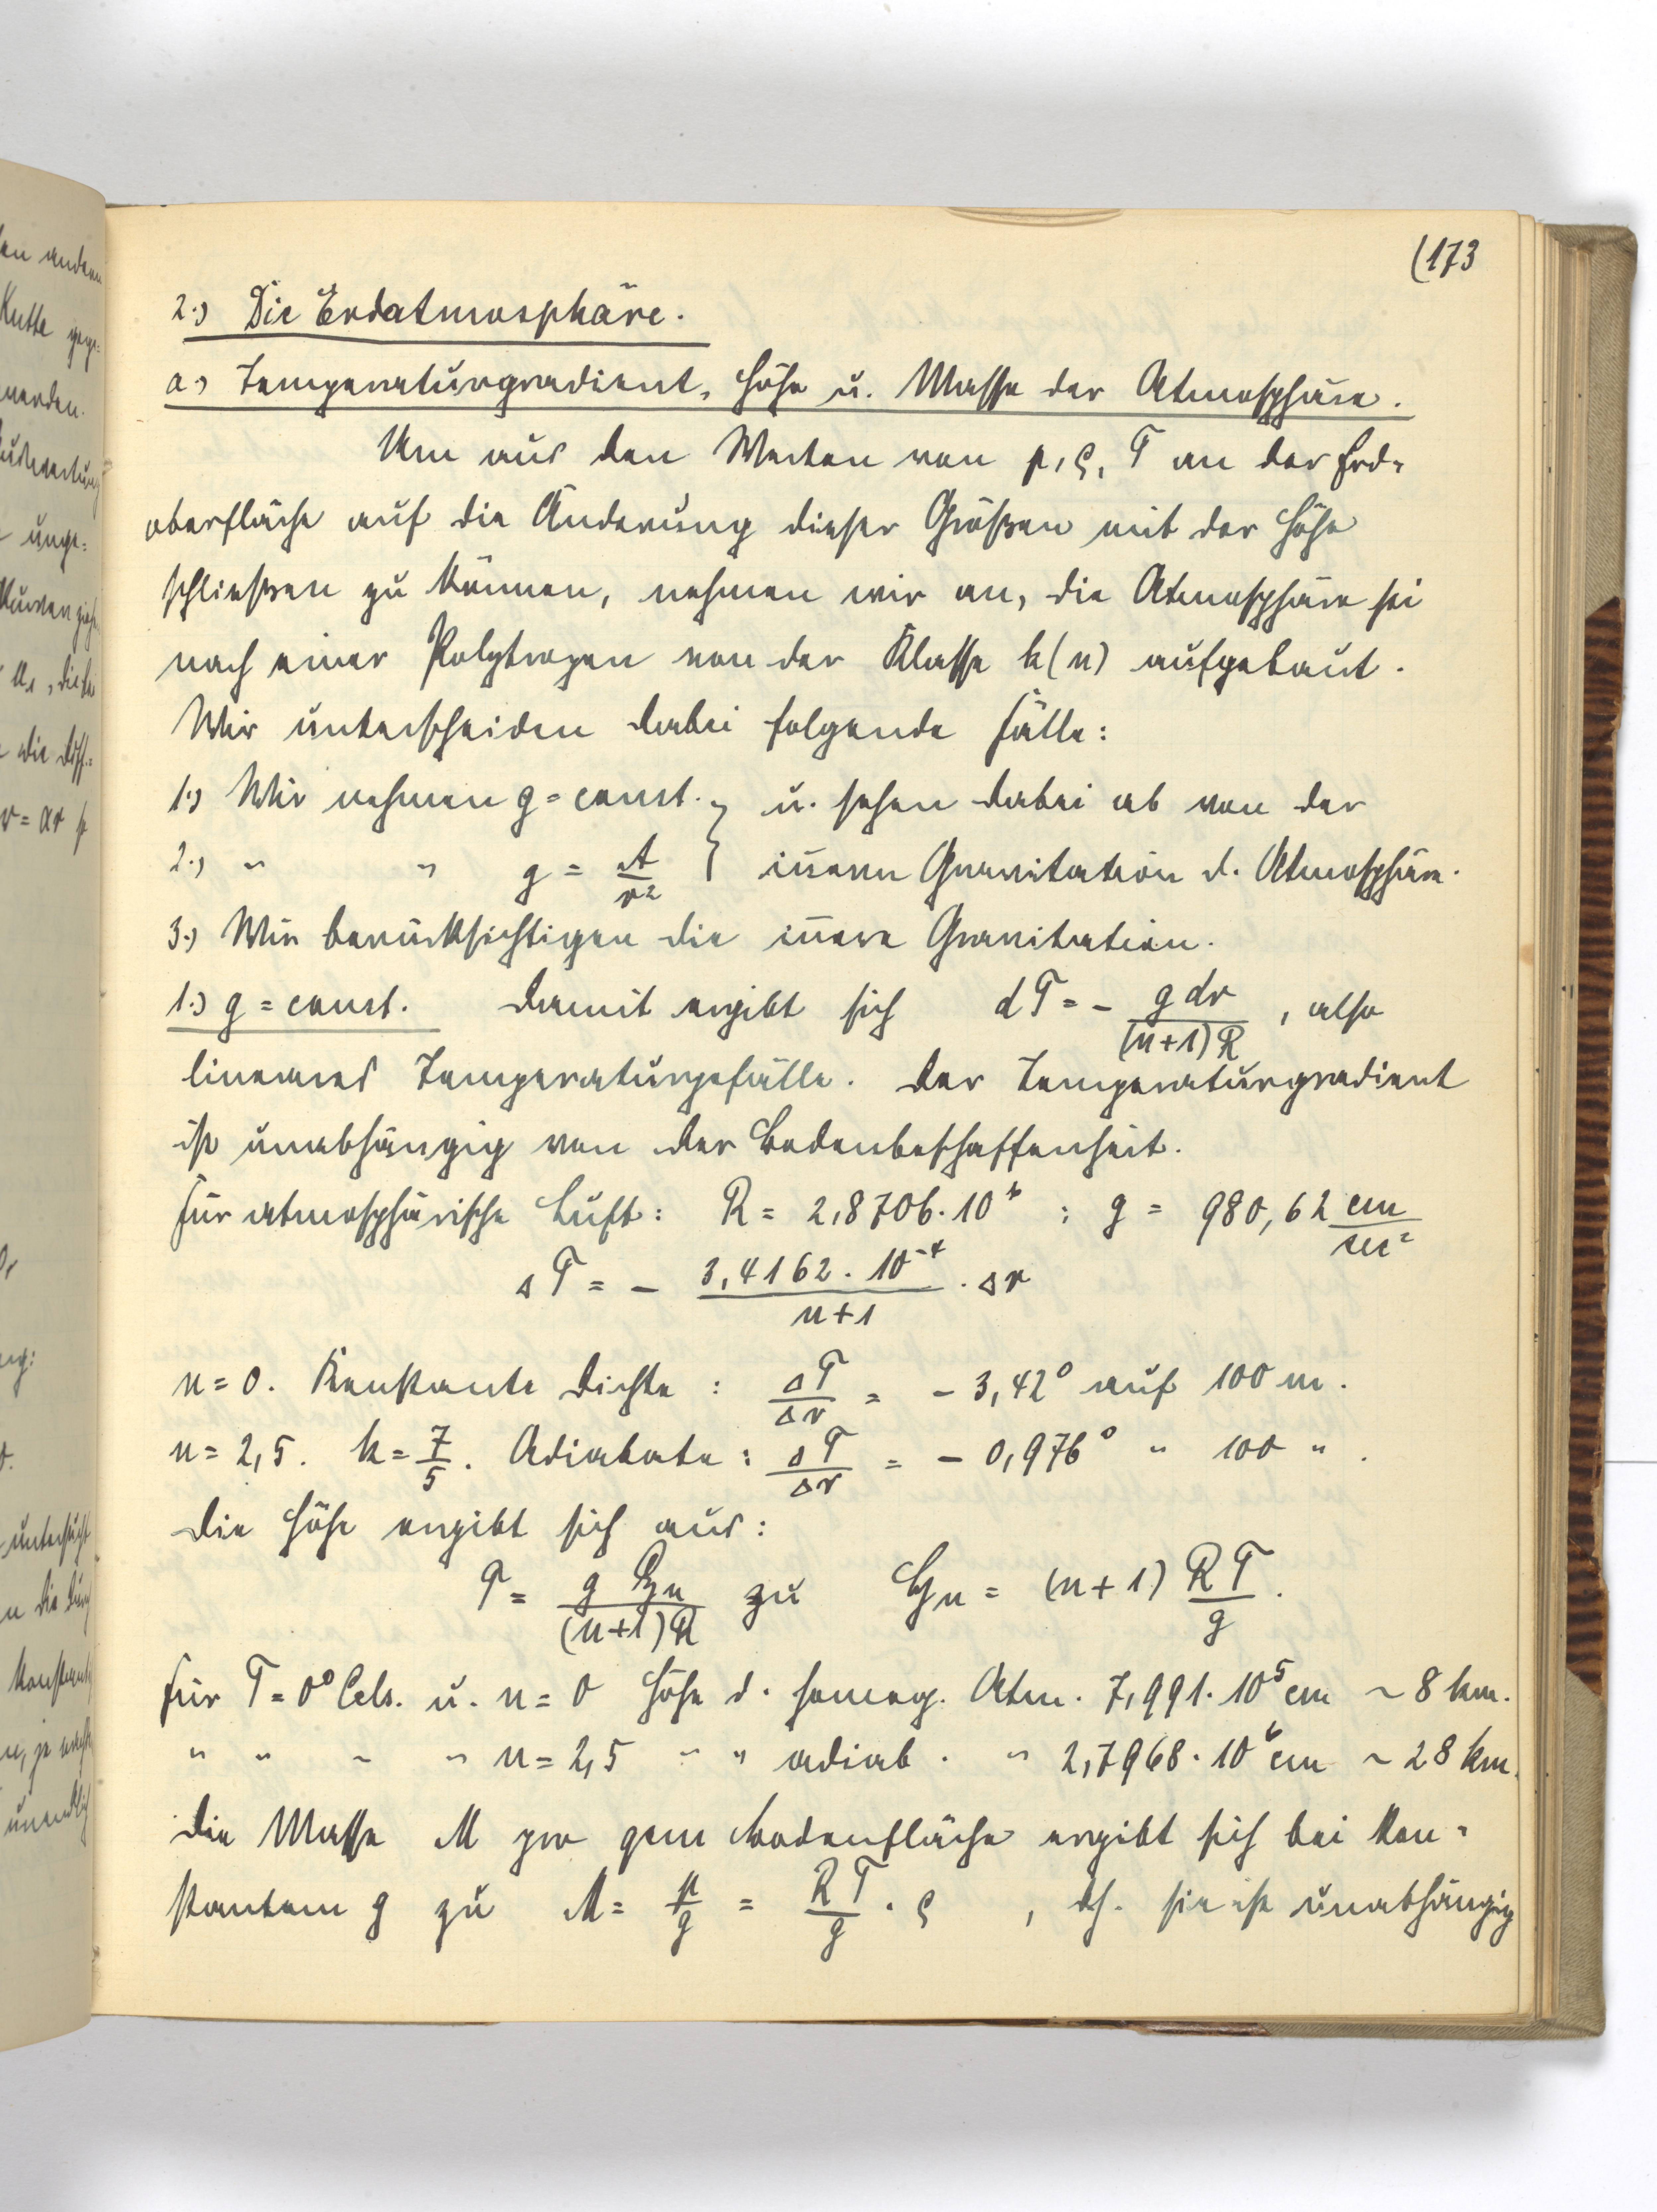 (173
2.) Die Erdatmosphäre.
a.) Temperaturgradient, Höhe u. Masse der Atmosphäre.
Um aus den Werten von p, ρ, T an der Erd=
oberfläche auf die Änderung dieser Größen mit der Höhe
schließen zu können, nehmen wir an, die Atmosphäre sei
nach einer Polytropen von der Klasse k(n) aufgebaut.
Wir unterscheiden dabei folgende Fälle:
1.) Wir nehmen g = const. } u. sehen dabei ab von der
2.) " " g = A/r² } innern Gravitation d. Atmosphäre.
3.) Wir berücksichtigen die innere Gravitation.
1.) g = const. Damit ergibt sich dT = - g dr/(n+1)R , also
lineares Temperaturgefälle. Der Temperaturgradient
ist unabhängig von der Bodenbeschaffenheit.
Für atmosphärische Luft: R = 2,8706·10⁶ ; g = 980,62 cm/sec²
ΔT = - 3,4162·10⁻⁴/n+1 · Δr
n = 0. Konstante Dichte : ΔT/Δr = - 3,42° auf 100 m.
n = 2,5. k = 7/5. Adiabate : ΔT/Δr = - 0,976° " 100 " .
Die Höhe ergibt sich aus:
T = g ℌn/(n+1)R zu ℌn = (n+1) RT/g .
Für T = 0° Cels. u. n = 0 Höhe d. homog. Atm. 7,991·10⁵ cm ~ 8 km.
" " " " n = 2,5 " " adiab. " 2,7968·10⁶ cm ~ 28 km.
Die Masse M pro qcm Bodenfläche ergibt sich bei kon=
stantem g zu M = p/g = RT/g · ρ , dh. sie ist unabhängig
en andern
Kutta gege=
werden.
unge=